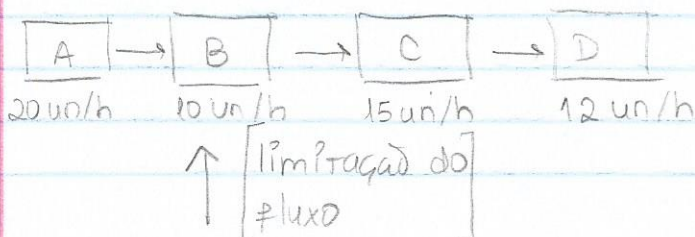 A → B → C → D
20 un/h 10 un/h 15 un/h 12 un/h
↑ limitação do
fluxo